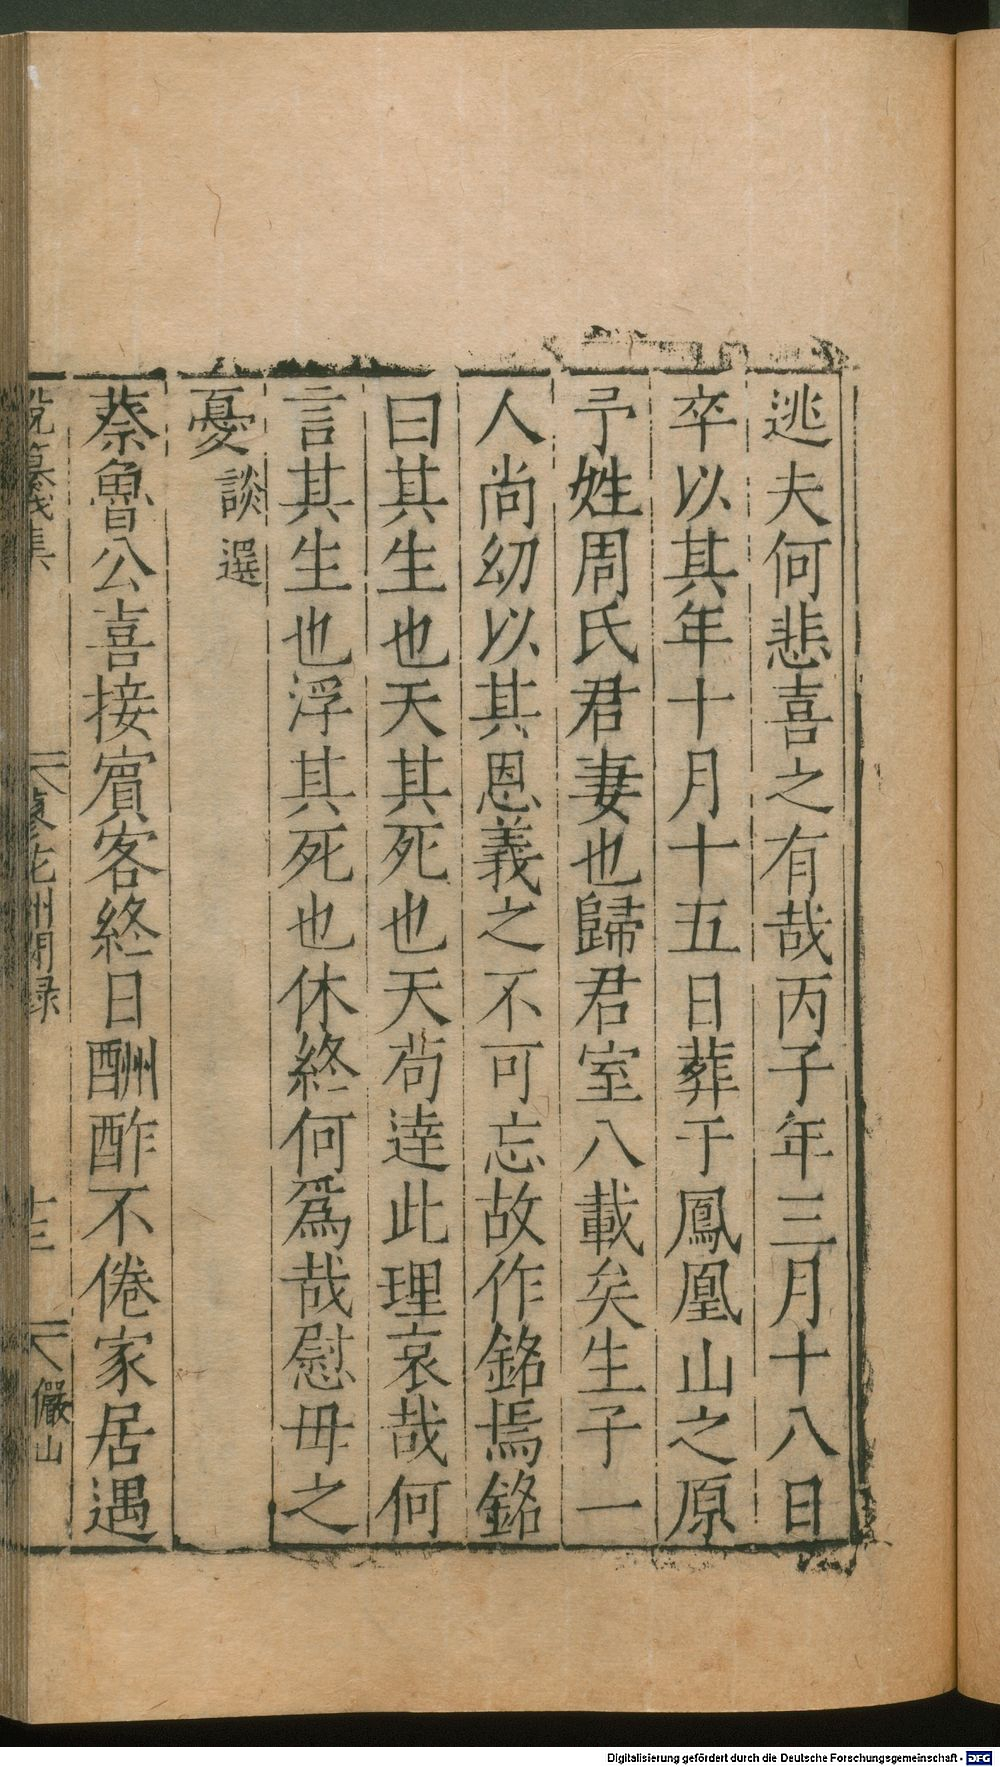 逃夫何悲喜之有哉丙子年三月十八日
卒以其年十月十五日葬于鳳凰山之原
予姓周氏君妻也歸君室八載矣生子一
人尚幼以其恩義之不可忘故作銘焉銘
曰其生也天其死也天茍達此理哀哉何
言其生也浮其死也休終何爲哉慰母之
憂 談選
蔡魯公喜接賓客終日酬酢不倦家居遇
儼山
Digitalisierung gefördert durch die Deutsche Forschungsgemeinschaft - DFG